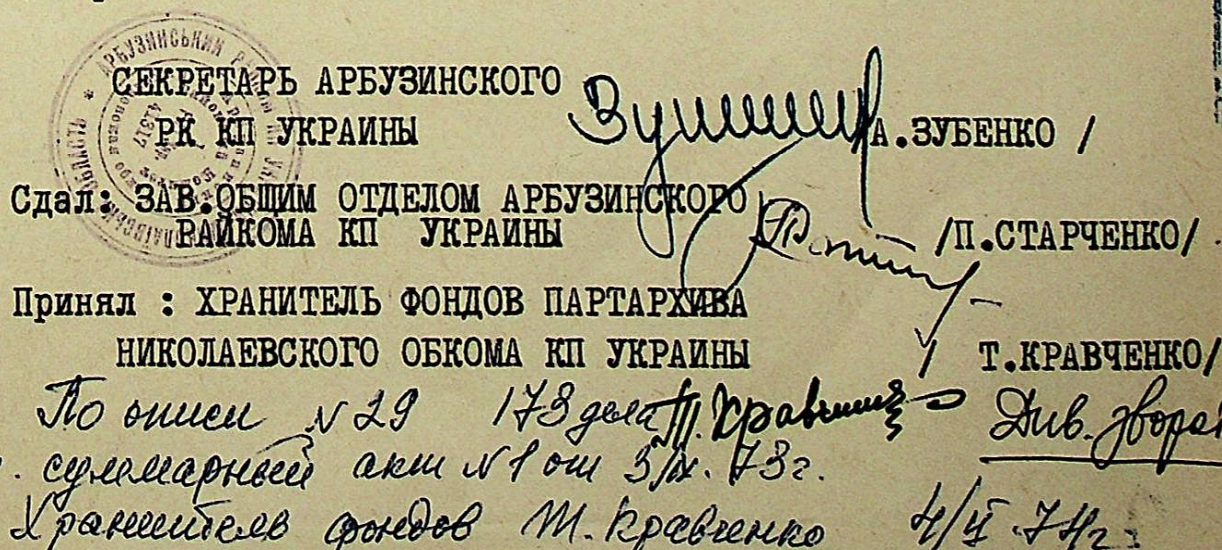 СЕКРЕТАРЬ АРБУЗИНСКОГО
РК КП УКРАИНЫ А.ЗУБЕНКО /
Сдал: ЗАВ.ОБЩИМ ОТДЕЛОМ АРБУЗИНСКОГО
РАЙКОМА КП УКРАИНЫ /П.СТАРЧЕНКО/
Принял : ХРАНИТЕЛЬ ФОНДОВ ПАРТАРХИВА
НИКОЛАЕВСКОГО ОБКОМА КП УКРАИНЫ / Т.КРАВЧЕНКО/
По описи №29 173 дела Див. зворот
суммарный акт №1 от 3/IX. 73г.
Хранитель фондов Т. Кравченко 74г.